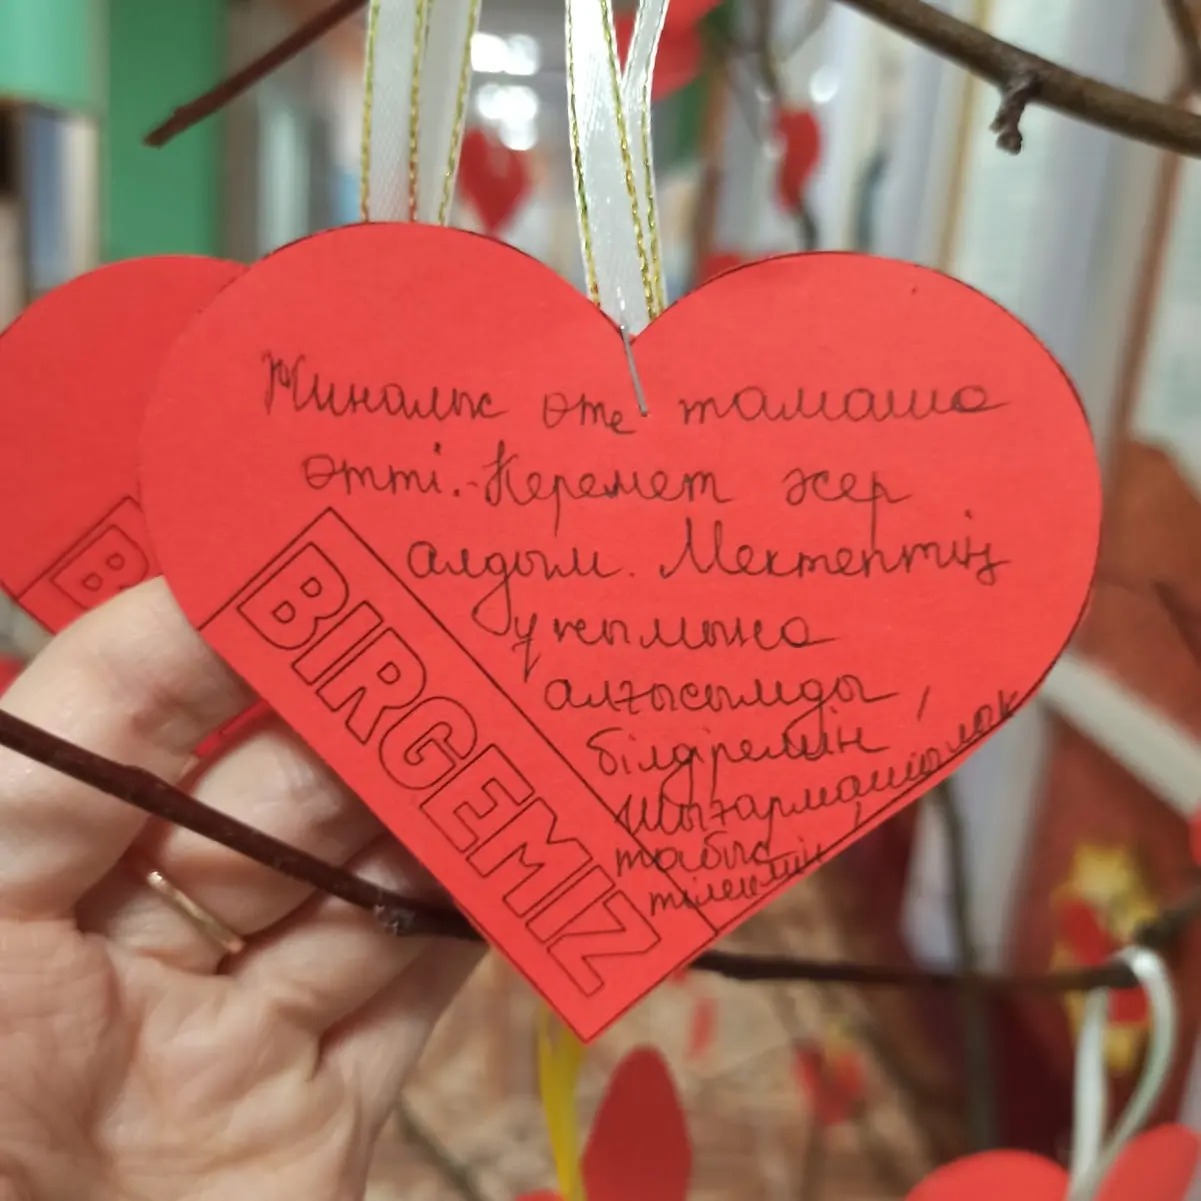 Жиналыс өте тамаша
өтті. Керемет әсер
алдым. Мектептің
ұжымына
алғысымды
білдіремін,
Шығармашылық
табыс
тілеймін
BIRGEMIZ
B